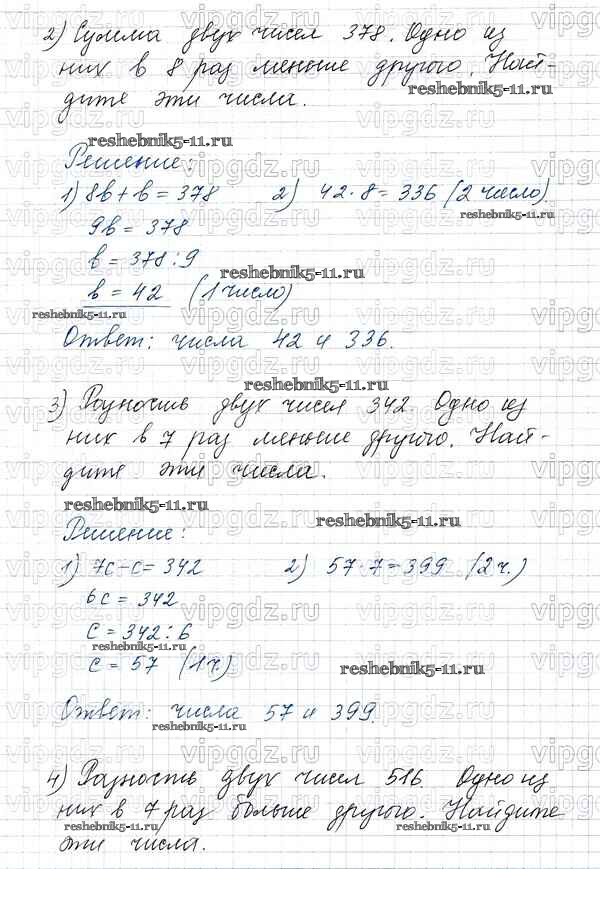 2) Сумма двух чисел 378. Одно из
них в 8 раз меньше другого. Най-
дите эти числа.
reshebnik5-11.ru
Решение:
1) 8в+в=378 2) 42·8=336 (2 число).
reshebnik5-11.ru
9в=378
в=378:9
reshebnik5-11.ru
в=42 (1 число)
reshebnik5-11.ru
Ответ: числа 42 и 336.
reshebnik5-11.ru
3) Разность двух чисел 342. Одно из
них в 7 раз меньше другого. Най-
дите эти числа.
reshebnik5-11.ru
reshebnik5-11.ru
Решение:
1) 7с-с=342 2) 57·7=399 (2ч.)
6с=342
с=342:6
reshebnik5-11.ru
с=57 (1ч.)
reshebnik5-11.ru
Ответ: числа 57 и 399.
reshebnik5-11.ru
4) Разность двух чисел 516. Одно из
них в 7 раз больше другого. Найдите
reshebnik5-11.ru reshebnik5-11.ru
эти числа.